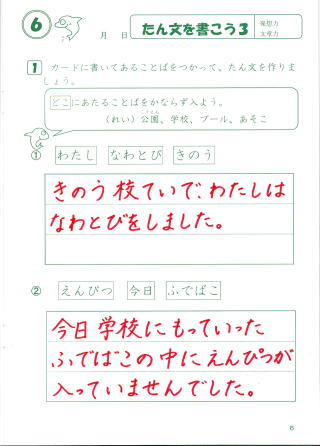 6
月 日
たん文を書こう3
発想力
文章力
1 カードに書いてあることばをつかって、たん文を作りま
しょう。
どこにあたることばをかならず入よう。
(れい)公園、学校、プール、あそこ
① わたし なわとび きのう
きのう 校ていで、わたしは
なわとびをしました。
② えんぴつ 今日 ふでばこ
今日 学校に もっていった
ふでばこの 中に えんぴつが
入っていませんでした。
6